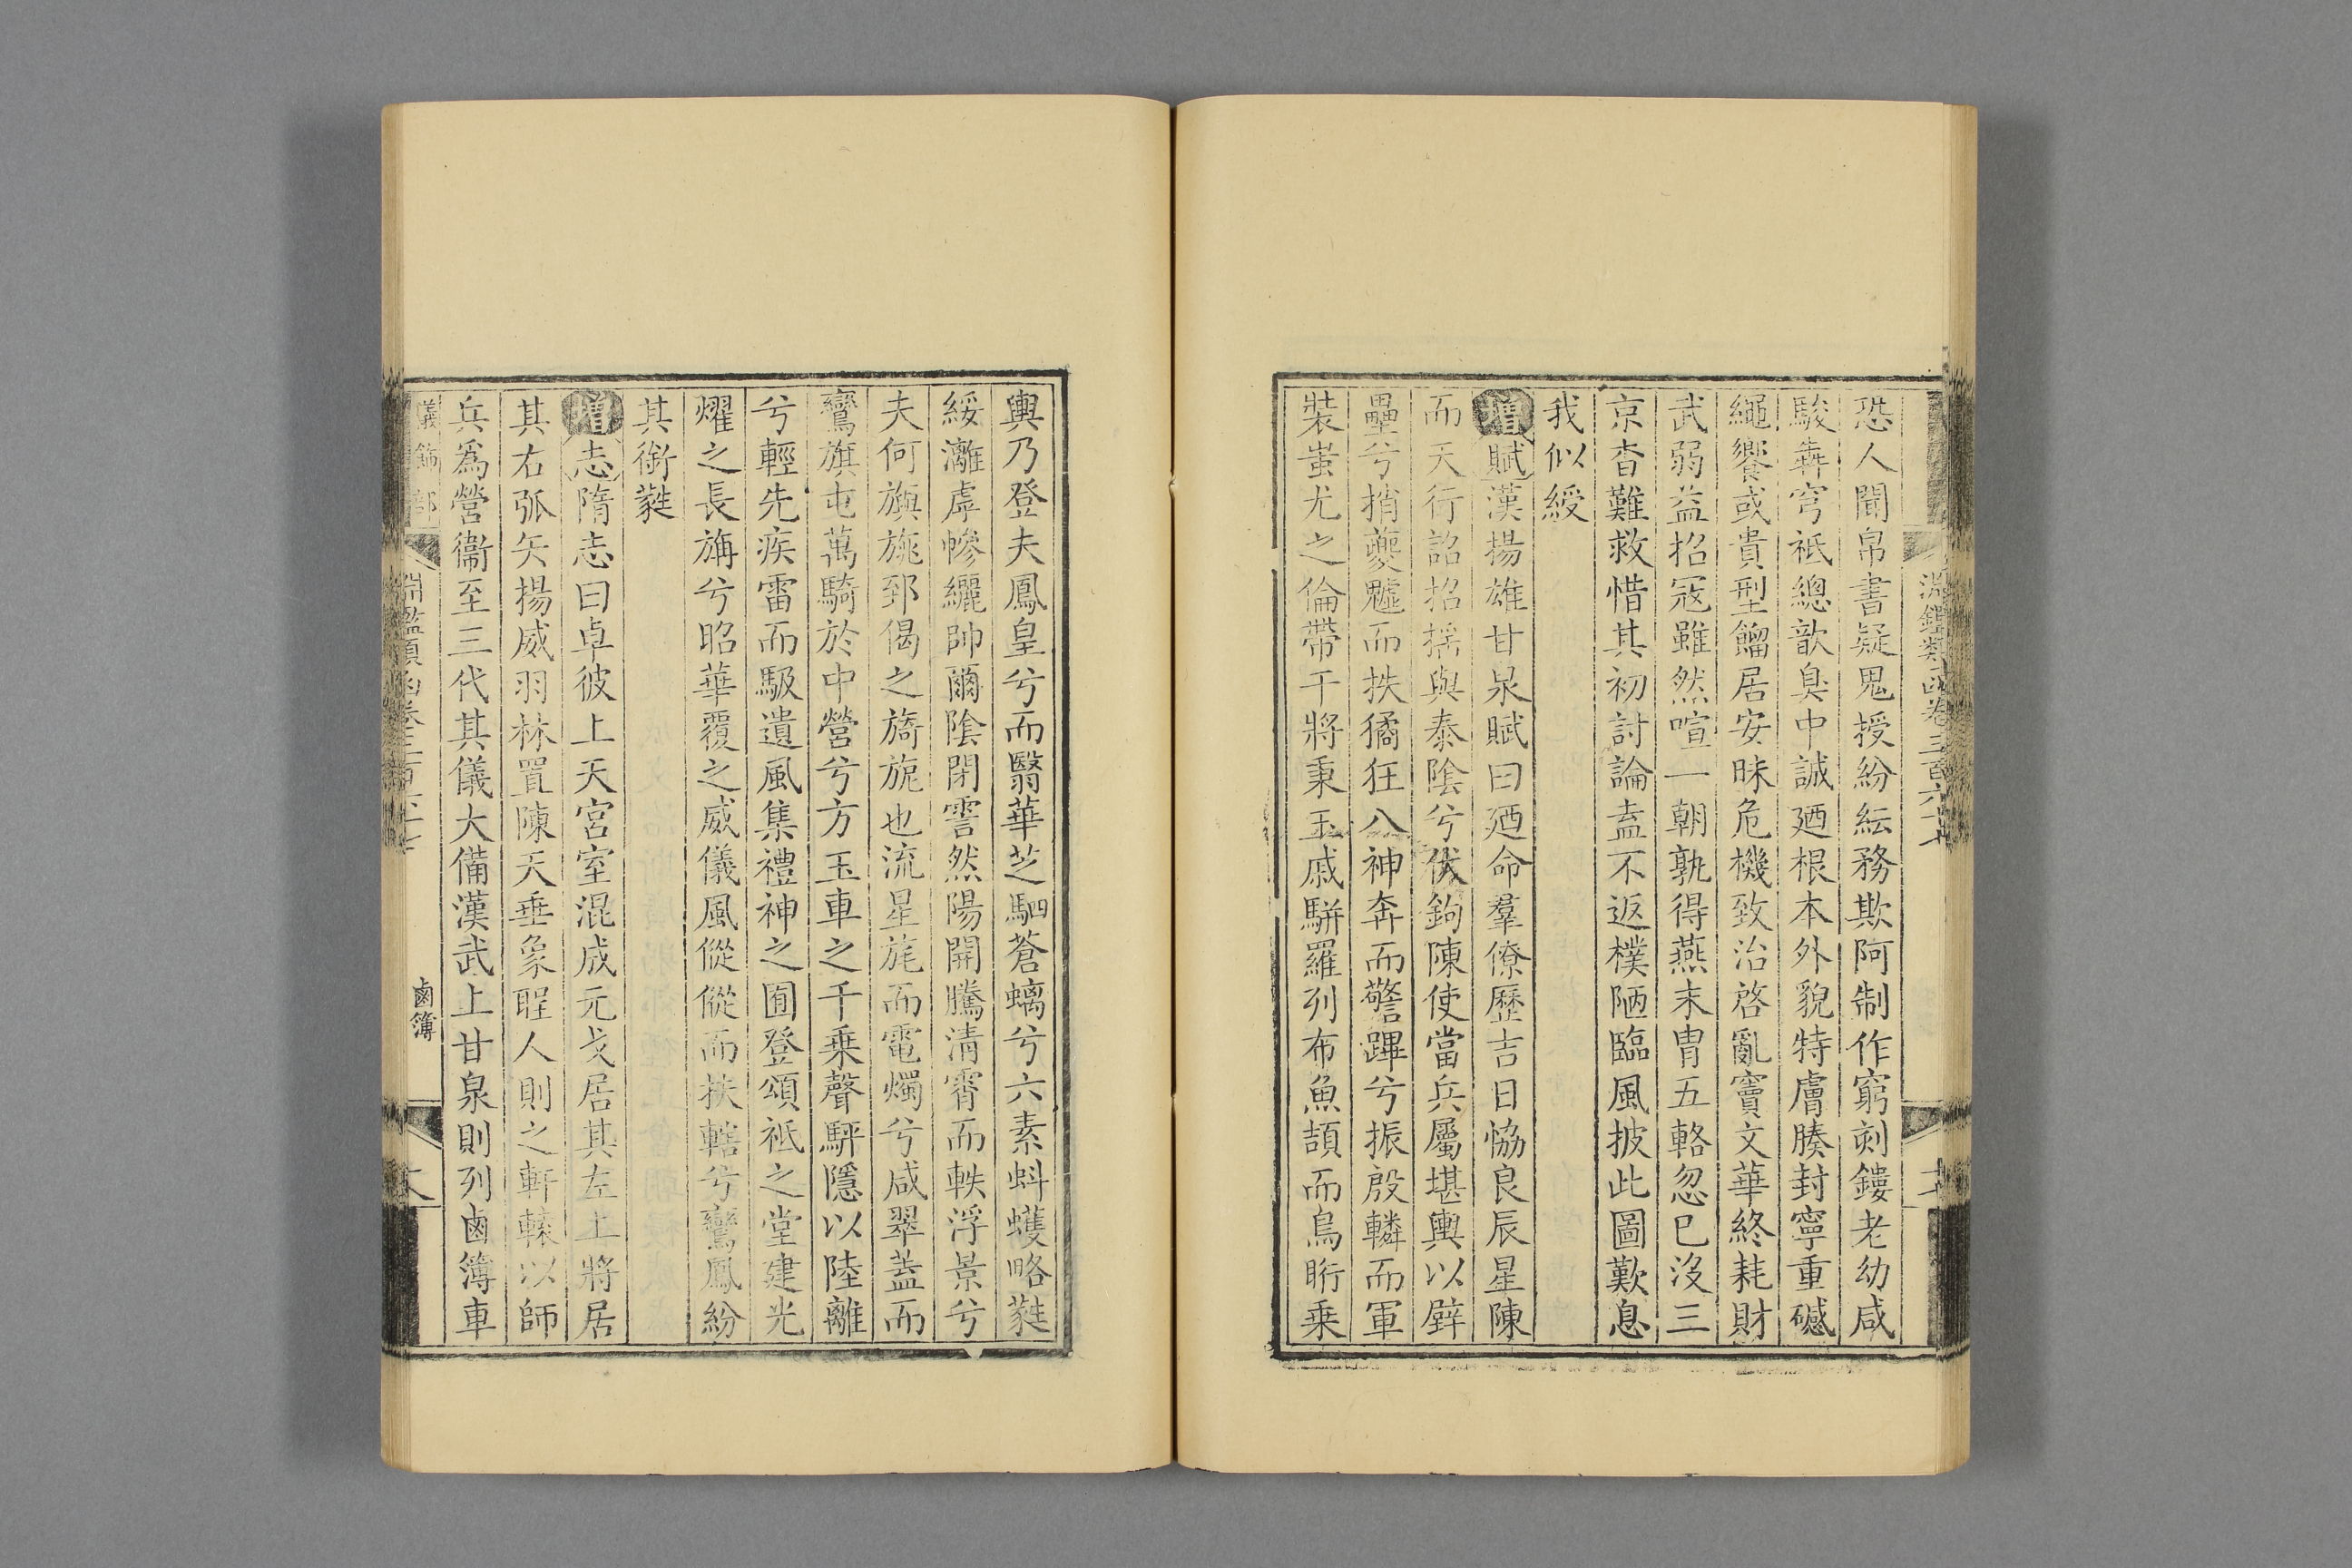 淵鑑類函卷三百六十七
恐人聞帛書疑鬼授紛紜務欺阿制作窮刻鏤老幼咸
駿犇穹祗總歆臭中誠廼根本外貌特膚腠封寜重礮
繩饗或貴型餾居安昧危機致治啓亂竇文華終耗財
武弱益招冦雖然喧一朝孰得燕末胄五輅忽已沒三
京杳難救惜其初討論盍不返樸陋臨風披此圖歎息
我似綬
增賦漢揚雄甘泉賦曰廼命羣僚歷吉日恊良辰星陳
而天行詔招摇與泰陰兮伏鉤陳使當兵屬堪輿以壁
壘兮捎夔魖而抶獝狂八神奔而警蹕兮振殷轔而軍
裝蚩尤之倫帶干將秉玉戚駢羅列布魚頡而鳥䀪乗
輿乃登夫鳳皇兮而翳華芝駟蒼螭兮六素虯蠖略蕤
綏灕虖幓纚帥爾陰閉霅然陽開騰清霄而軼浮景兮
夫何旟旐郅偈之旖旎也流星旄而電燭兮咸翠蓋而
鸞旗屯萬騎於中營兮方玉車之千乗聲駍隱以陸離
兮輕先疾雷而馺遺風集禮神之囿登頌祗之堂建光
燿之長旃兮昭華覆之威儀風傱傱而扶轄兮鸞鳳紛
其銜蕤
增志隋志曰卓彼上天宮室混成元戈居其左上將居
其右弧矢揚威羽林置陳天垂象聖人則之軒轅以師
兵爲營衞至三代其儀大備漢武上甘泉則列鹵簿車
儀飾部
淵鑑類函卷三百六十七
鹵簿